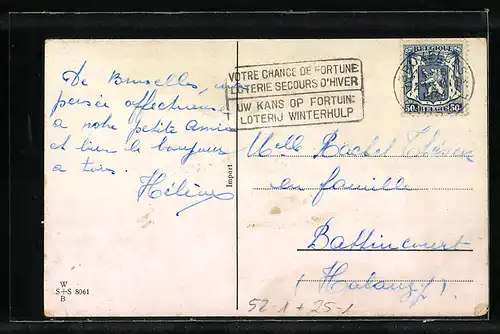 De Bruxelles, une
pensée affectueuse
a notre petite Amie
et bien le bonjour
a tous.
Hélène
W
S+S 8061
B
Import
VOTRE CHANCE DE FORTUNE:
LOTERIE SECOURS D'HIVER
UW KANS OP FORTUIN:
LOTERIJ WINTERHULP
BELGIQUE
50 BELGIE 50
Melle Rachel
en famille
Battincourt
(Halanzy).
52-1 + 25-1